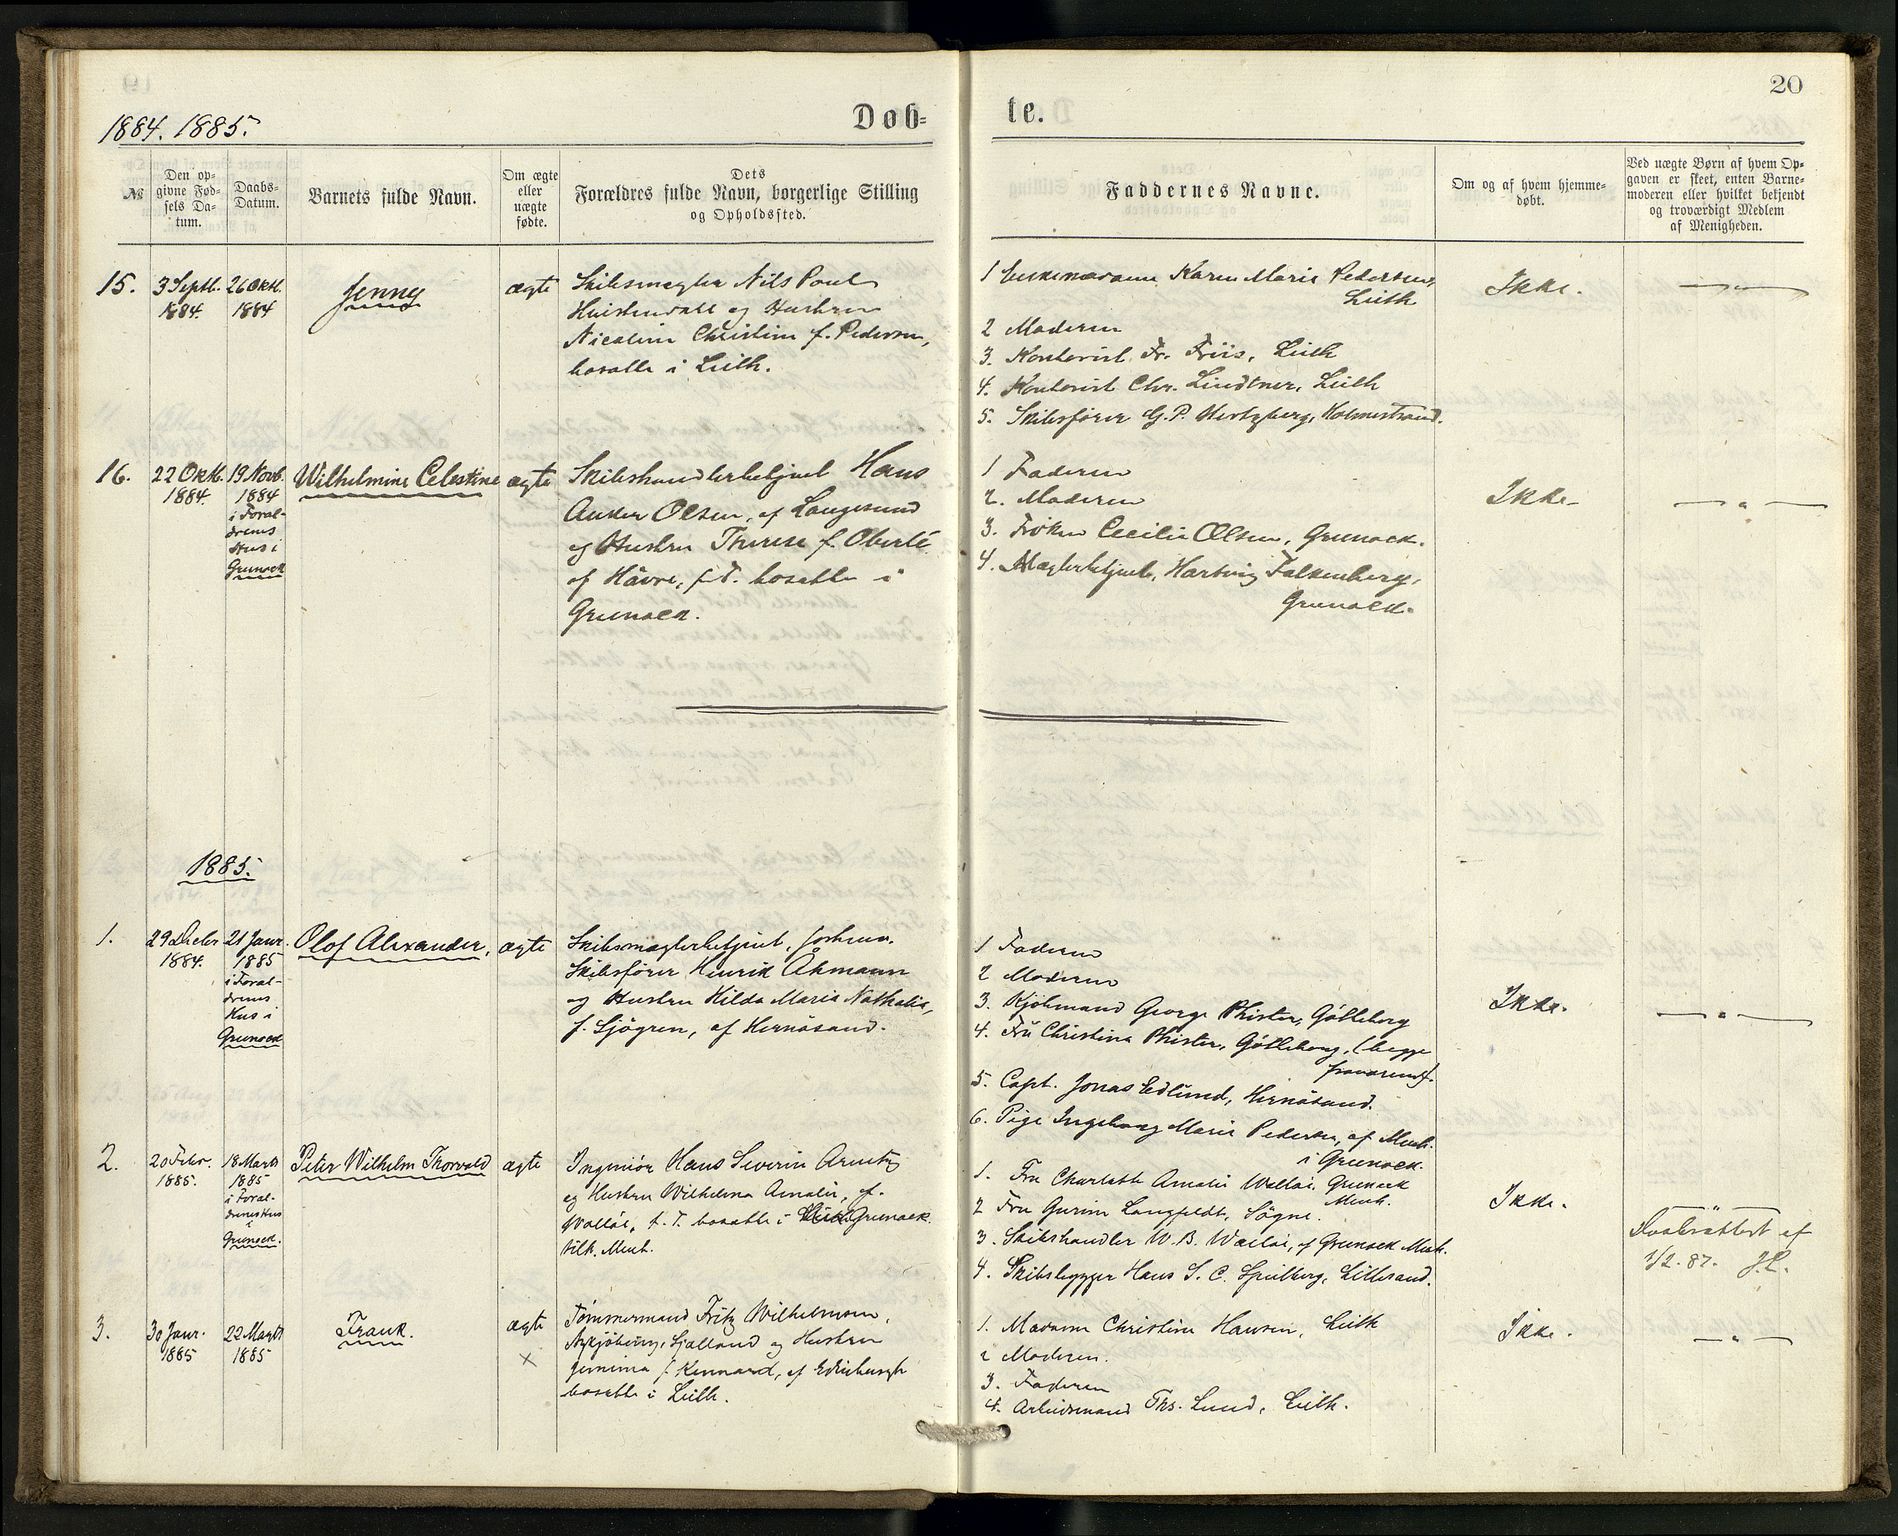 20
1884. 1885.
Døb=
te.
№
Den op-
givne Fød-
sels Da-
tum.
Daabs-
Datum.
Barnets fulde Navn.
Om ægte
eller
uægte
fødte.
Dets
Forældres fulde Navn, borgerlige Stilling
og Opholdssted.
Faddernes Navne.
Om og af hvem hjemme-
døbt.
Ved uægte Børn af hvem Op-
gaven er skeet, enten Barne-
moderen eller hvilket bekjendt
og troværdigt Medlem
af Menigheden.
15.
3 Septb.
1884.
26 Oktb.
1884
Jenny
ægte
Skibsmægler Nils Poul
og Hustru
Nicoline Christine f. Pedersen,
bosatte i Leith.
1 Karen Marie Pedersen,
Leith
2 Moderen
3. Kontorist Fr. Friis, Leith
4. Kontorist Chr. Lindtner, Leith
5. Skibsfører G. P. Hertzberg, Holmestrand.
Ikke.
— " —
16.
22 Oktb.
1884.
19 Novb.
1884
i Foræl-
drenes
Hus i
Greenock
Wilhelmine Celestine
ægte
Skibshandlerbetjent Hans
Anker Olsen, af Langesund
og Hustru Therese f. Oberlé
af Hâvre, p. T. bosatte i
Greenock.
1 Faderen
2. Moderen
3. Frøken Cecilie Olsen, Greenock.
4. Mæglerbetjent, Hartvig Falkenberg,
Greenock.
Ikke
— " —
1885.
1.
29 Decbr
1884.
21 Janr.
1885
i Foræl-
drenes
Hus i
Greenock
Olof Alexander,
ægte
Skibsmæglerbetjent, forhenv.
Skibsfører Henrik Åhmann
og Hustru Hilda Maria Nathalia,
f. Sjögren, af Hernösand.
1 Faderen
2 Moderen
3. Kjöbmand George Phister, Götteborg
4. Fru Christina Phister, Götteborg, (begge
fraværende).
5. Capt. Jonas Edlund, Hernösand.
6. Pige Ingeborg Marie Pedersen, af Menh.
i Greenock.
Ikke.
— " —
2.
20 Febr.
1885.
18 Marts
1885
i Foræl-
drenes Hus
i
Greenock.
Peter Wilhelm Thorvald
ægte
Ingeniör Hans Severin Arentz
og Hustru Wilhelmina Amalie, f.
Walløe, p. T. bosatte i Greenock.
tilh. Menh.
1. Fru Charlotte Amalie Walløe, Greenock
Menh.
2 Fru Gurine Langfeldt, Sögne.
3. Skibshandler W. B. Walløe, af Greenock Menh.
4. Skibsbygger Hans S. C. Spilberg, Lillesand.
Ikke.
Daabsattest af
1/2. 87.
3.
30 Janr.
1885
22 Marts
1885
Frank.
ægte
×
Tømmermand Fritz Wilhelmsen,
Nykjöbing, Sjælland og Hustru
Jemima f. Kennard, af Edinburgh
bosatte i Leith.
1. Madame Christine Hansen, Leith
2 Moderen.
3. Faderen
4. Arbeidsmand Ths. Lund, Leith.
Ikke.
— " —